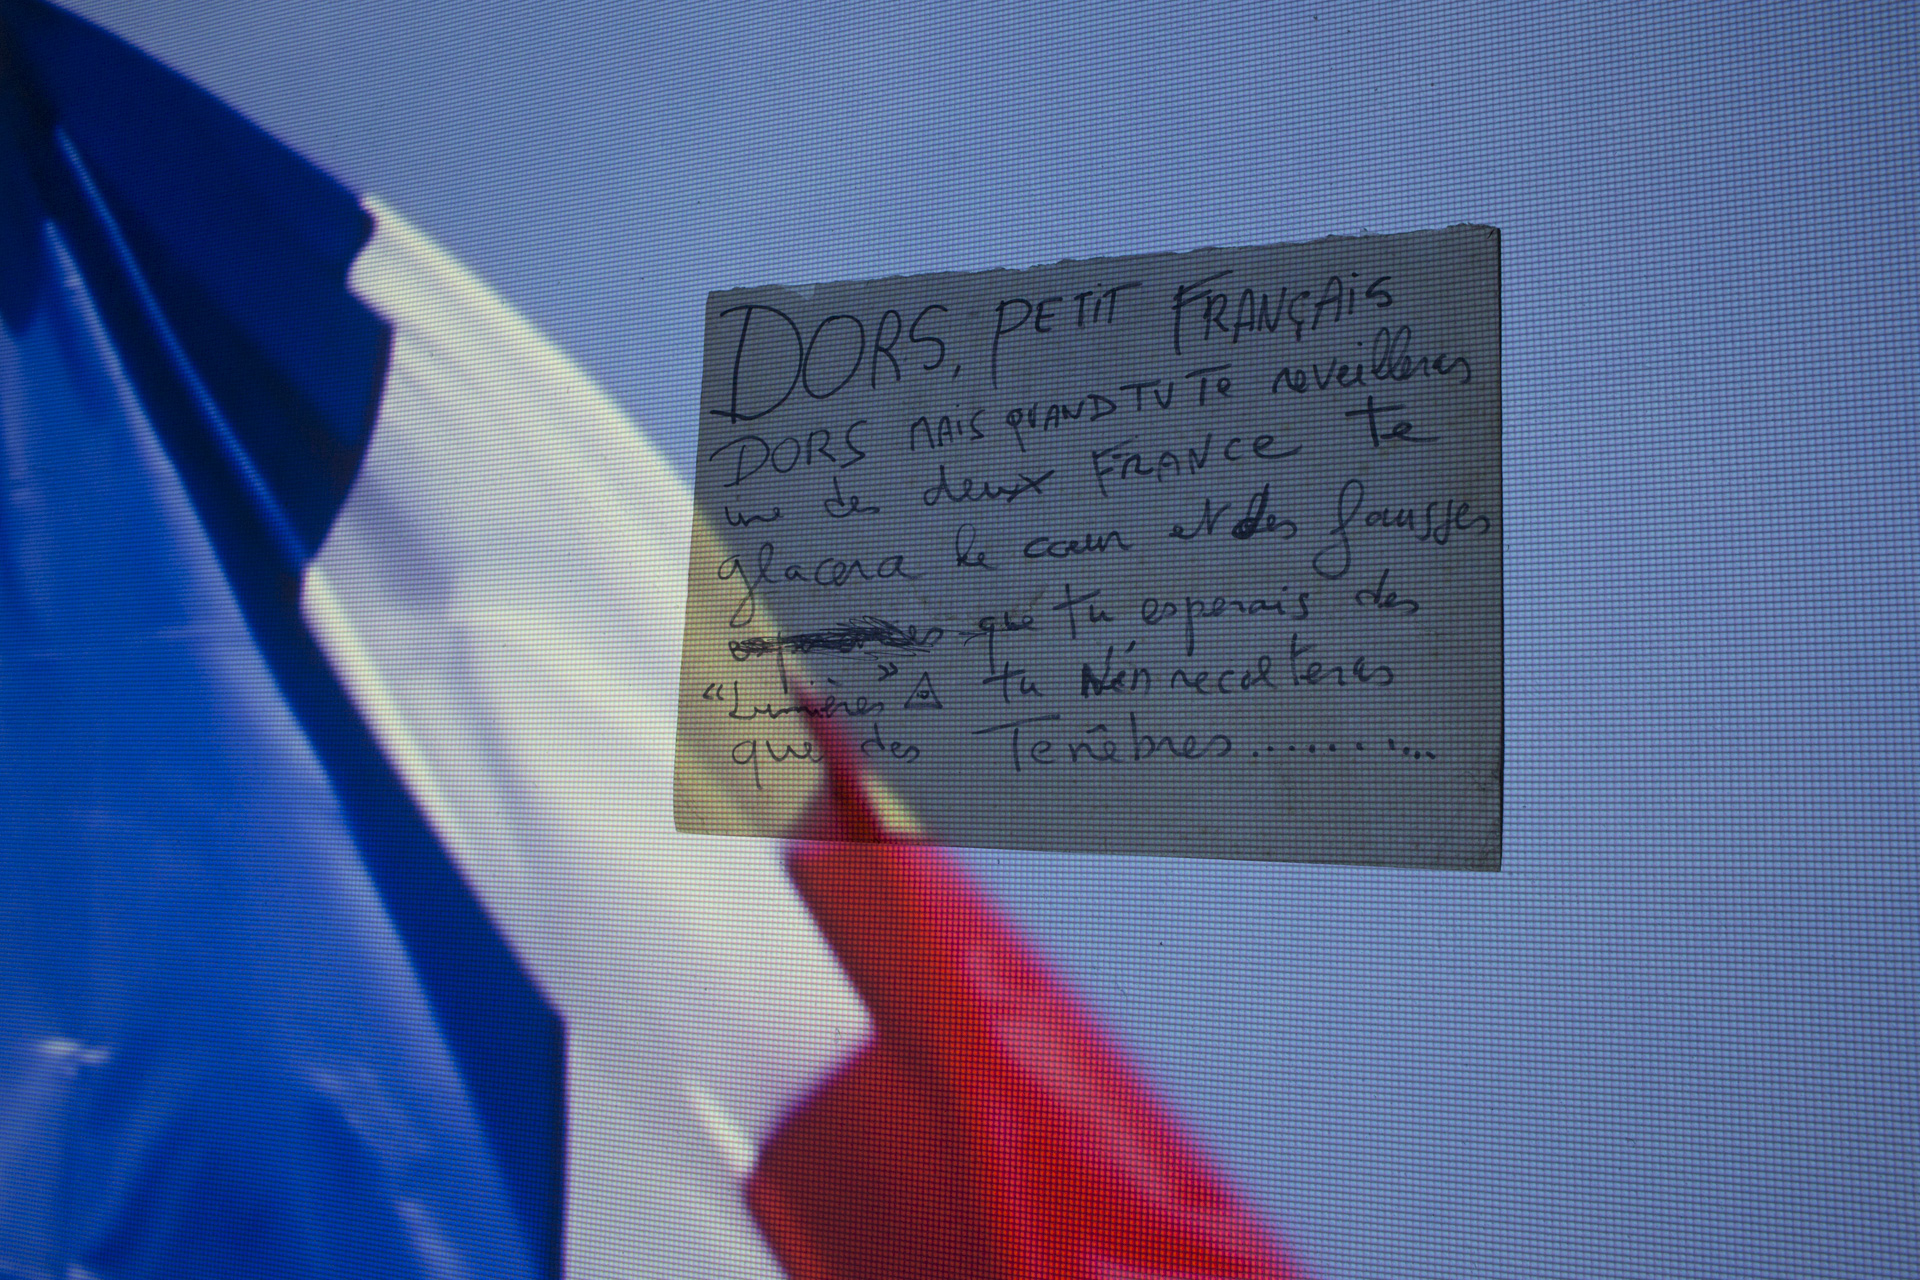 DORS, PETIT FRANÇAIS
DORS MAIS QUAND TU Te reveilleras
une des deux FRANCE te
glacera le cœur et des fausses
que tu esperais des
"Lumières" tu N'en recolteras
que des Tenèbres..........